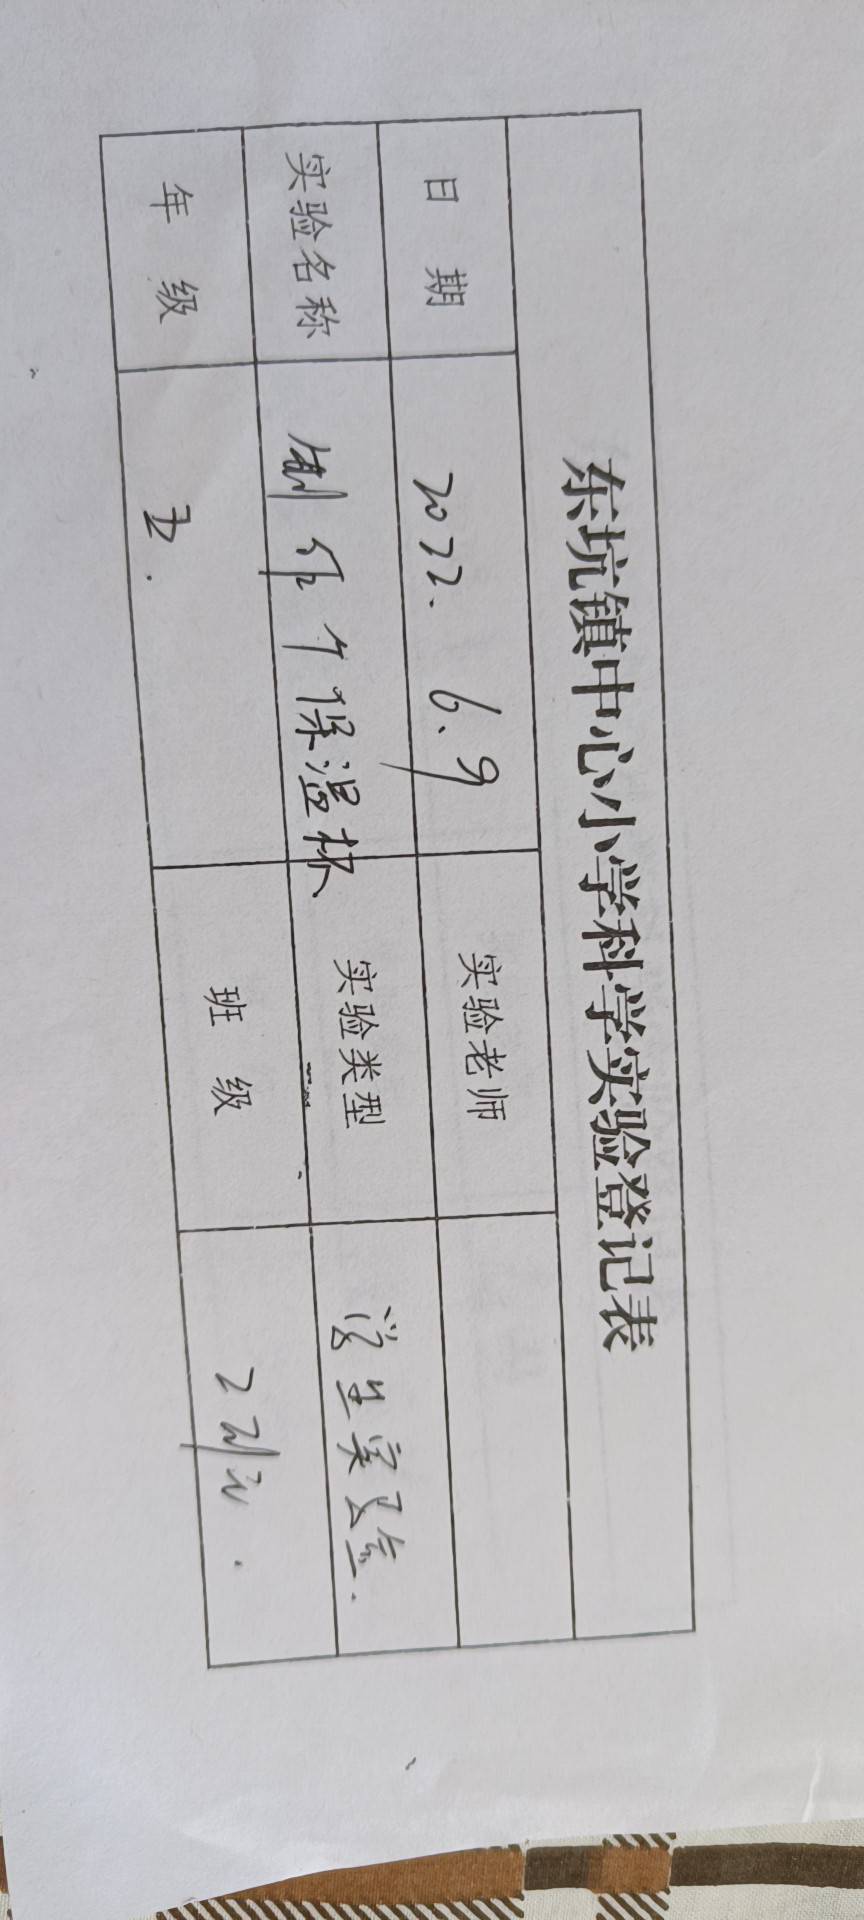 东坑镇中心小学科学实验登记表
日 期 2022. 6.9 实验老师
实验名称 制作个保温杯 实验类型 学生实验.
年 级 五. 班 级 2班.